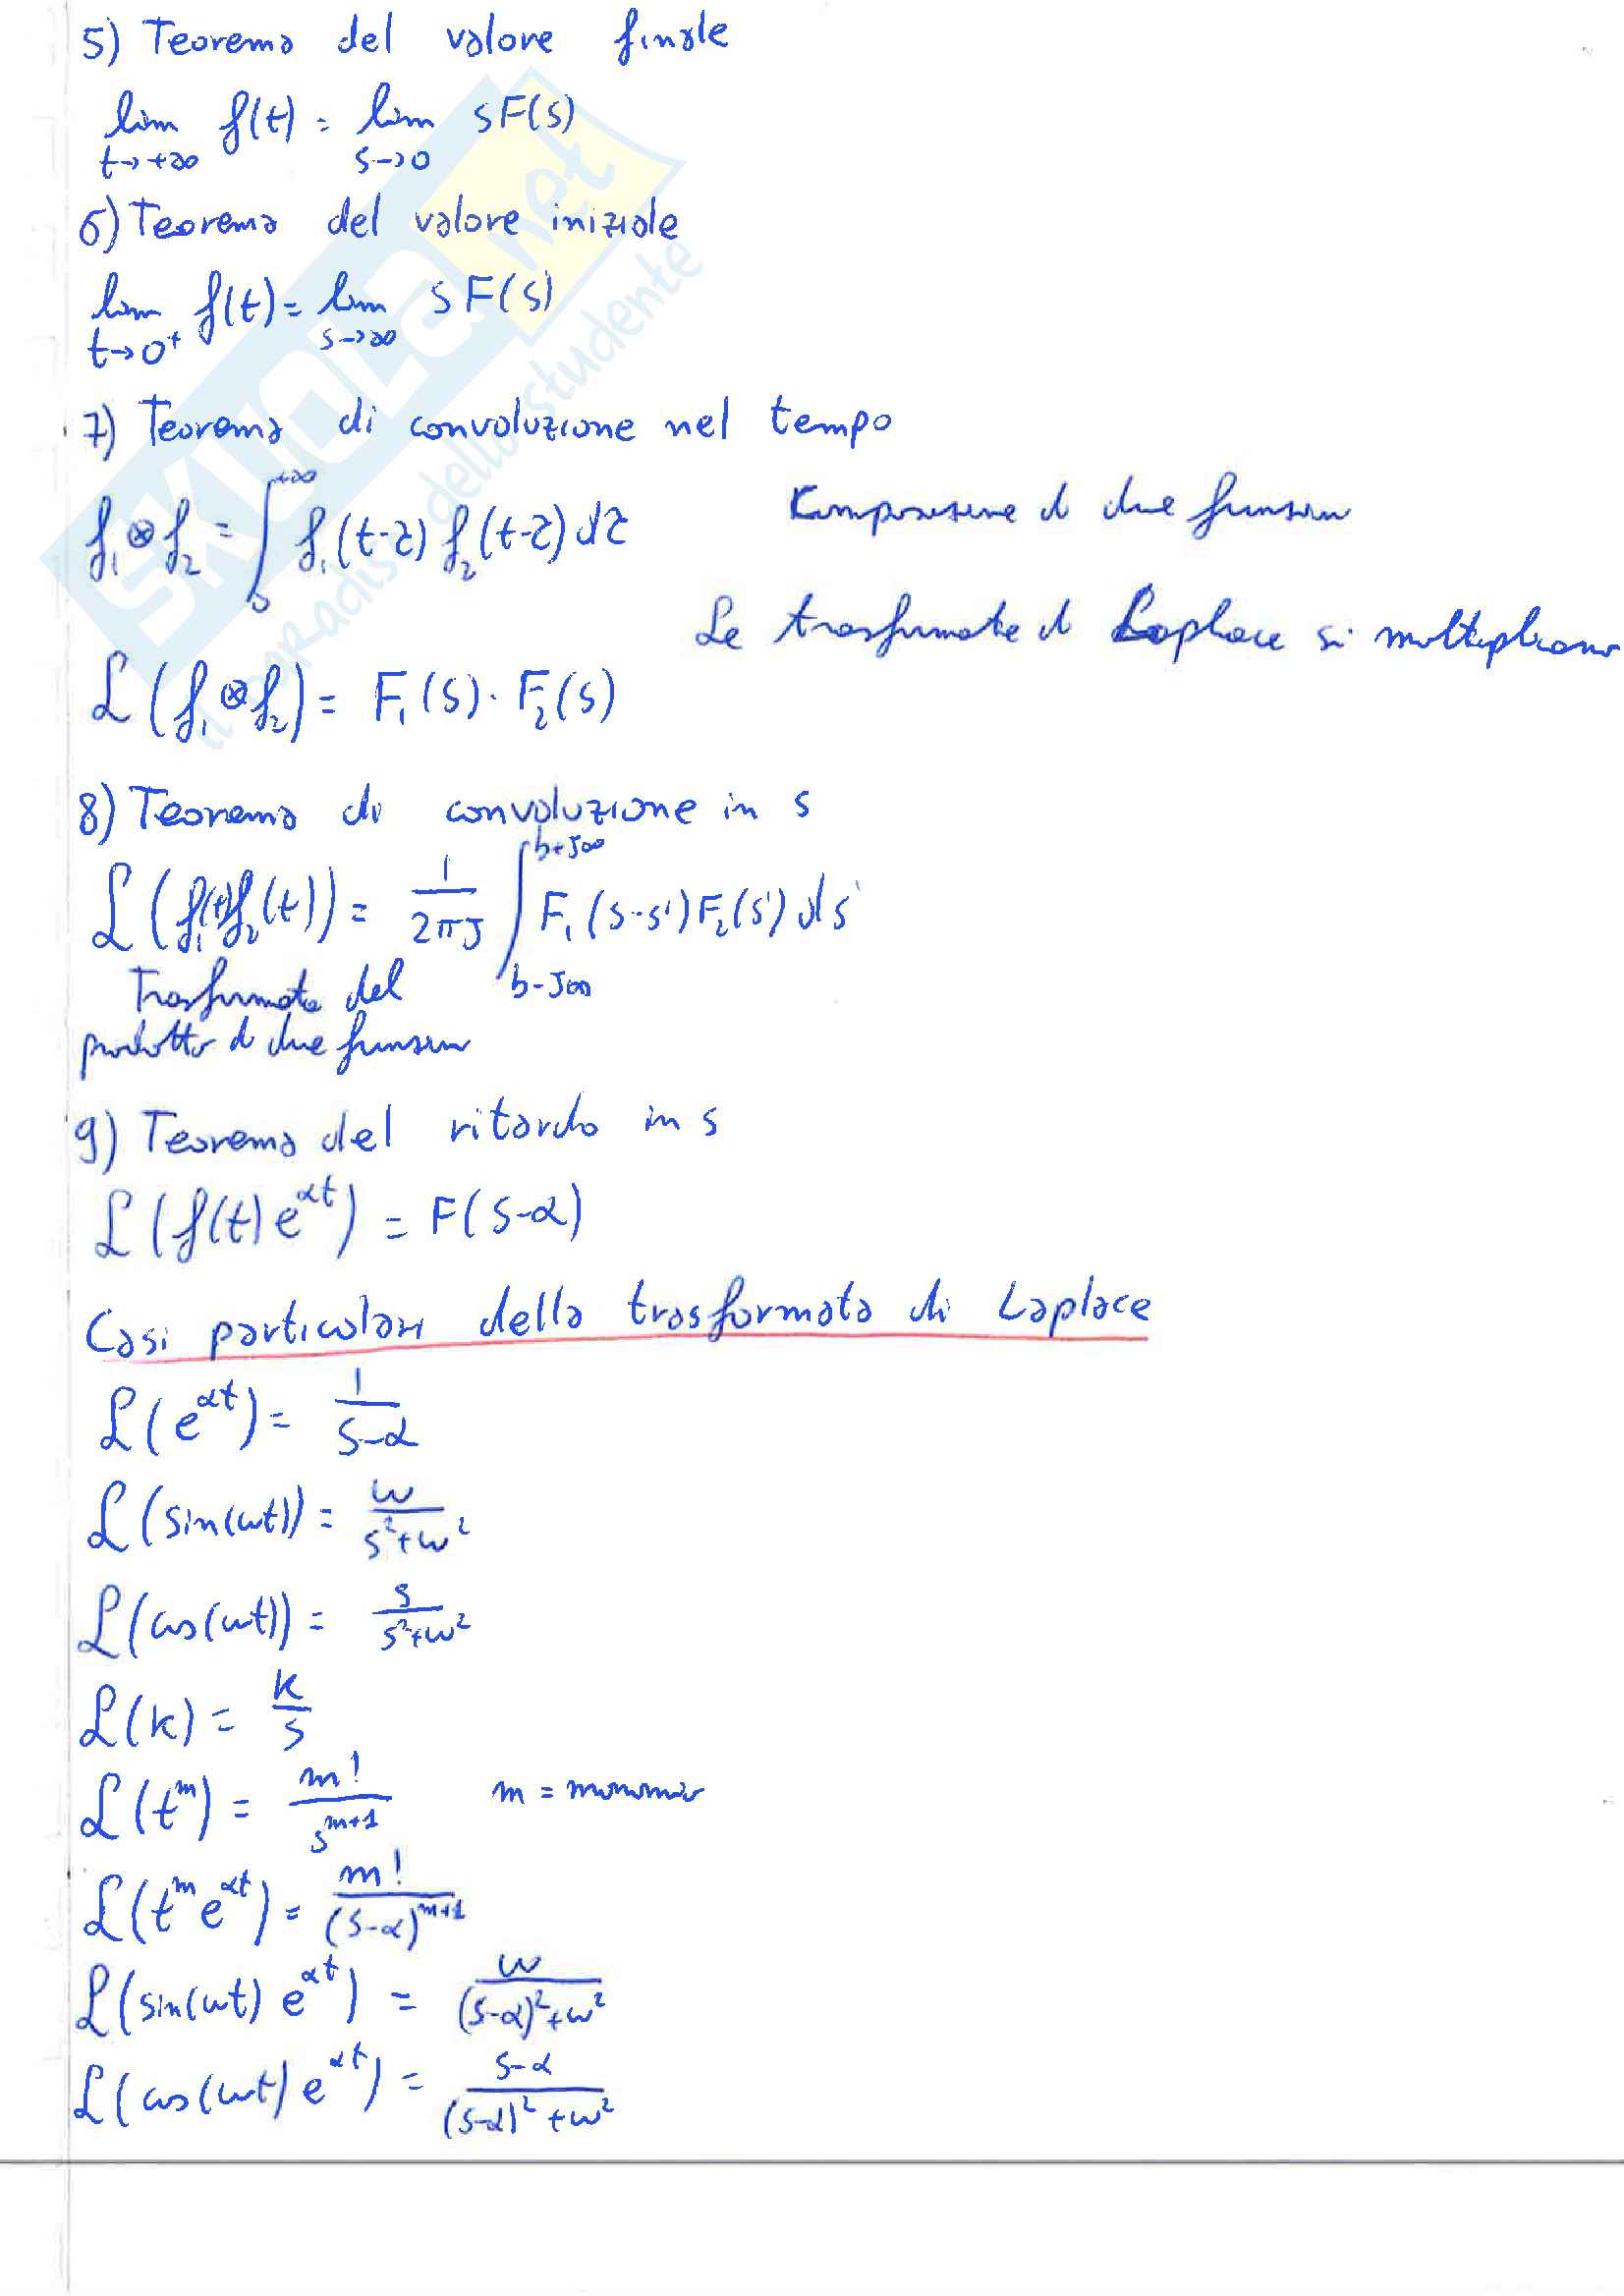 5) Teorema del valore finale
lim f(t) = lim sF(s)
t→+∞ s→0
6) Teorema del valore iniziale
lim f(t) = lim sF(s)
t→0⁺ s→∞
7) Teorema di convoluzione nel tempo
f₁⊗f₂ = ∫₀^{+∞} f₁(t-τ) f₂(t-τ) dτ Composizione di due funzioni
Le trasformate di Laplace si moltiplicano
ℒ(f₁⊗f₂) = F₁(s)·F₂(s)
8) Teorema di convoluzione in s
ℒ(f₁(t)f₂(t)) = 1/(2πJ) ∫_{b-J∞}^{b+J∞} F₁(s-s')F₂(s') ds'
Trasformata del
prodotto di due funzioni
9) Teorema del ritardo in s
ℒ(f(t) e^{αt}) = F(s-α)
Casi particolari della trasformata di Laplace
ℒ(e^{αt}) = 1/(s-α)
ℒ(sin(ωt)) = ω/(s²+ω²)
ℒ(cos(ωt)) = s/(s²+ω²)
ℒ(k) = k/s
ℒ(t^m) = m!/s^{m+1} m = monomio
ℒ(t^m e^{αt}) = m!/(s-α)^{m+1}
ℒ(sin(ωt) e^{αt}) = ω/((s-α)²+ω²)
ℒ(cos(ωt) e^{αt}) = (s-α)/((s-α)²+ω²)
SKUOLA.net
il paradiso dello studente